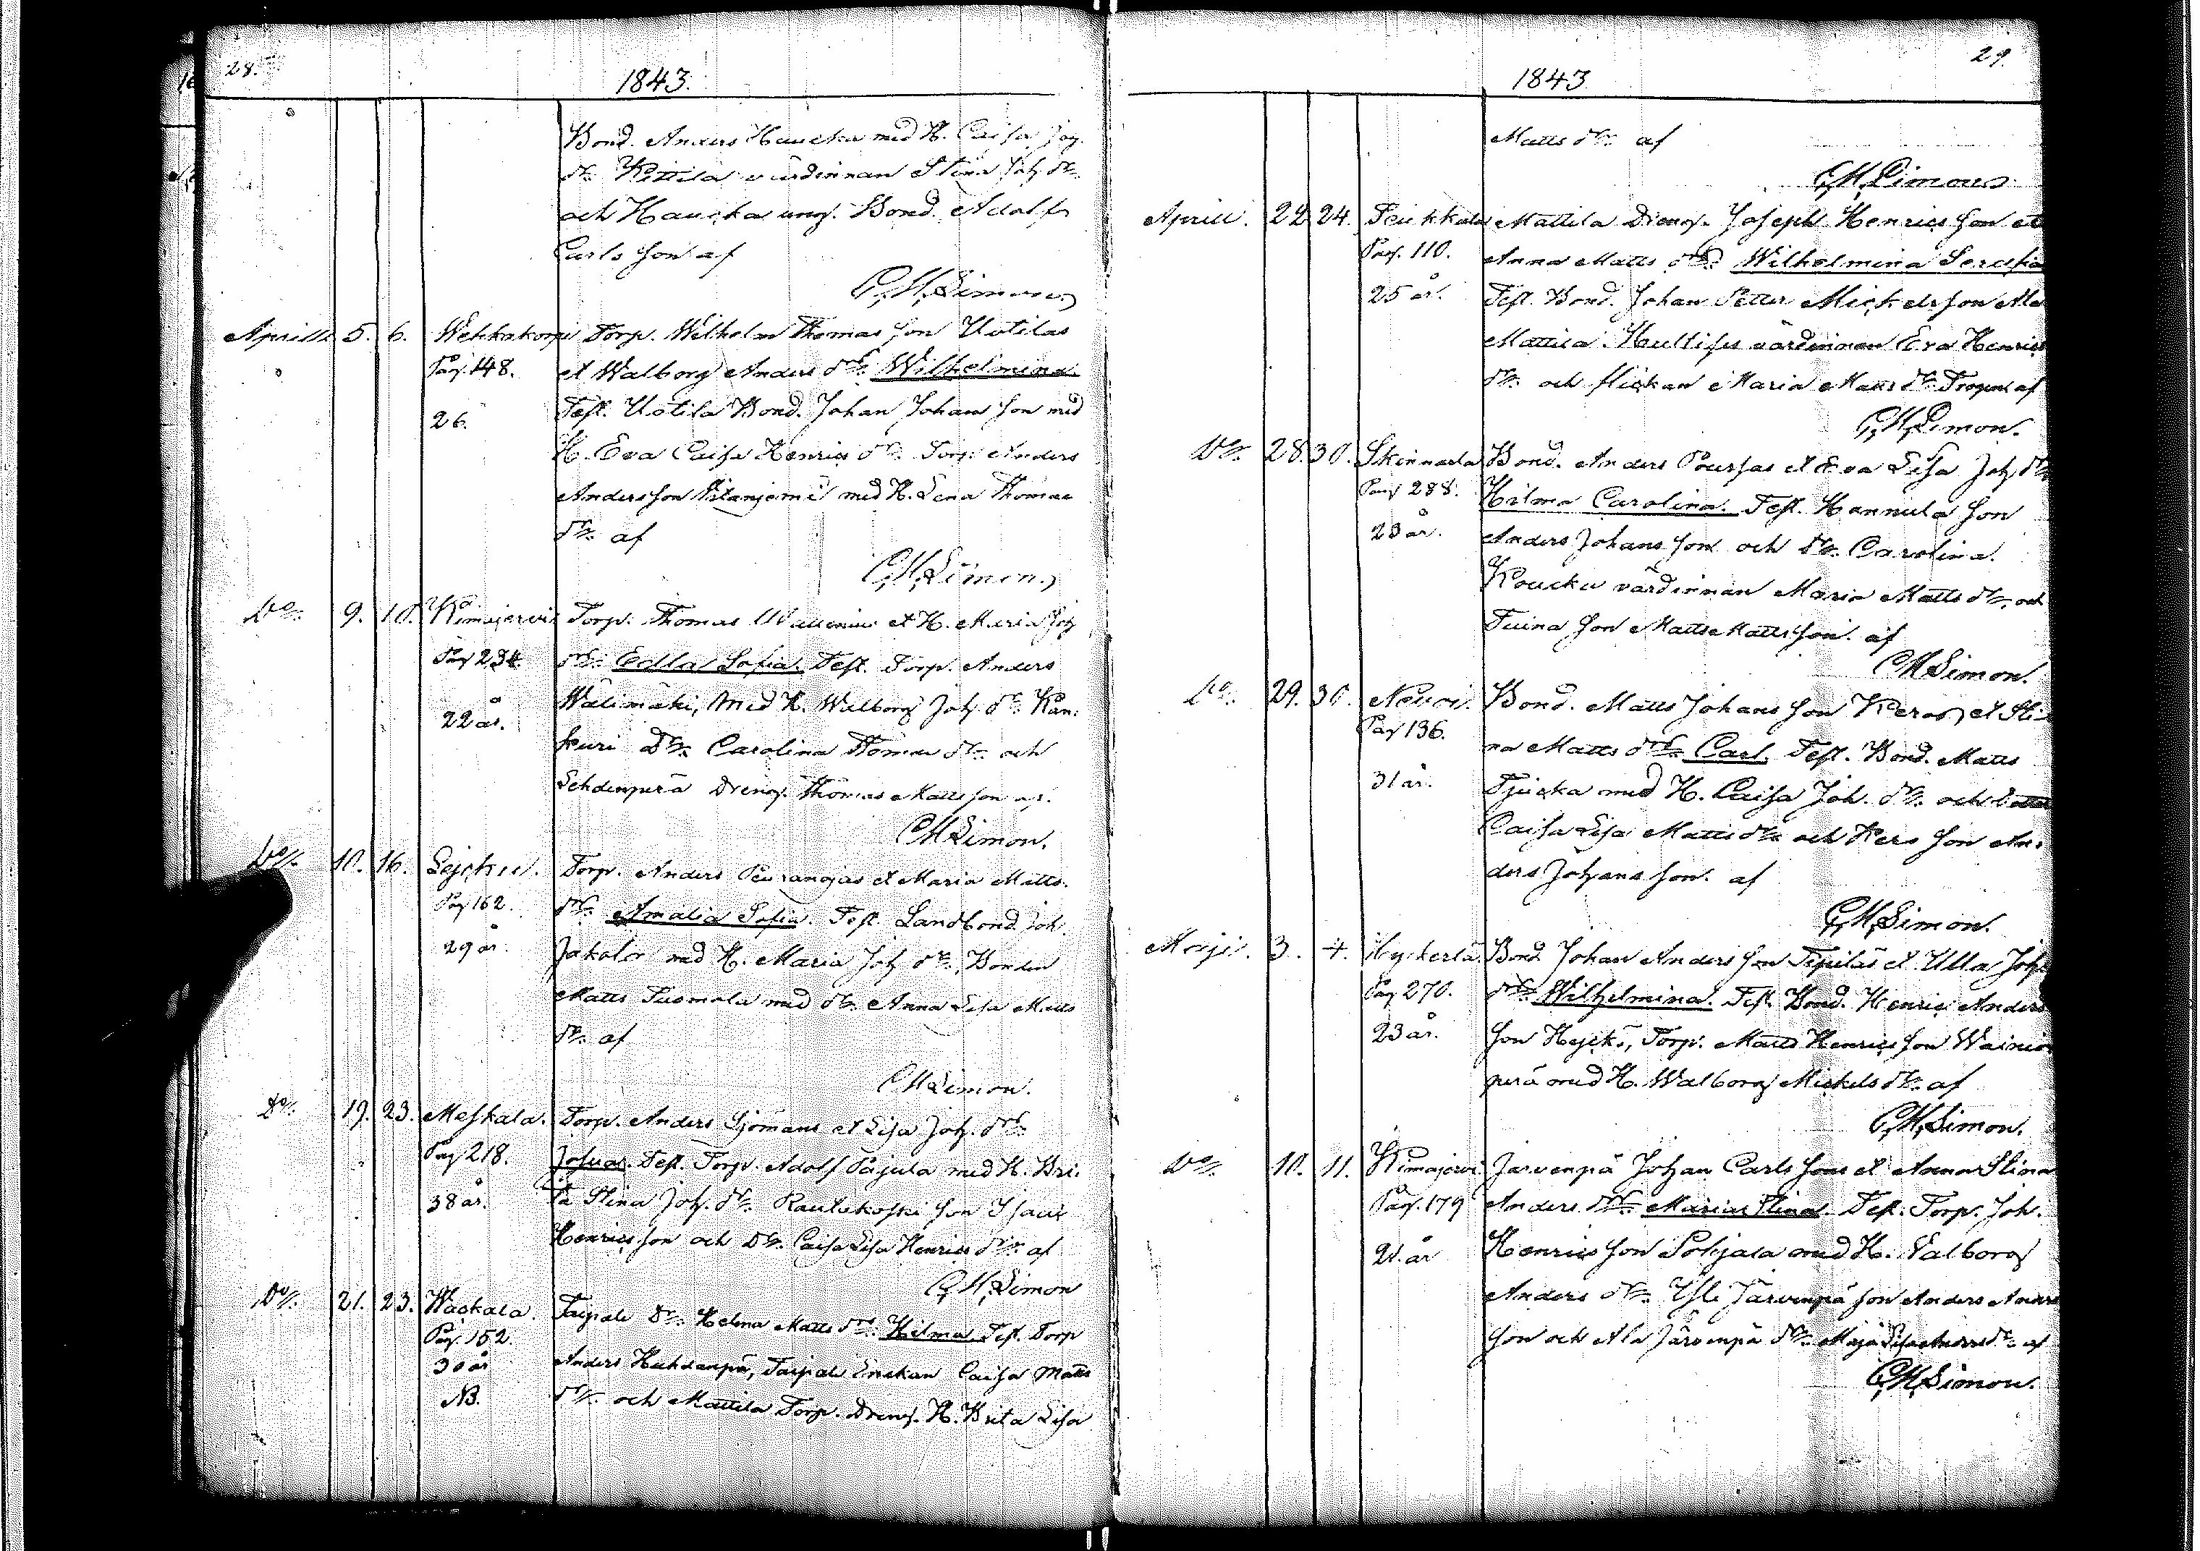 28.
1843.
Bond. Anders Haucka med H. Caisa Joh.
dr. Kittila värdinnan Stina Joh. dr.
och Haucka ung. Bond. Adolf
Carls son af
C,M,Simon.
Aprill 5. 6. Wehkakorpi Torp. Wilhelm Thomas son Uotilas
Pag. 148. et Walborg Anders dr. Wilhelmina
26. Test. Uotila Bond. Johan Johans son med
H. Eva Caisa Henrics dr. Torp. Anders
Anders son med H. Lena Thomas
dr. af
C,M,Simon.
Do. 9. 10. Kimajervi Torp. Thomas et H. Maria Joh.
Pag 234. dr. Edla Sofia. Test. Torp. Anders
22 år. Wälimäki, med H. Walborg Joh. dr. Kan-
kuri Dr. Carolina Thomas dr. och
Lehdenperä Dreng. Thomas Matts son af.
CMSimon.
Do. 10. 16. Torp. Anders et Maria Matts
Pag 162. dr. Amalia Sofia. Test. Landbond. Joh.
29 år. Jakola med H. Maria Joh. dr. Bonden
Matts Tuomola med dr. Anna Lisa Matts
dr. af
CMSimon.
Do. 19. 23. Meskala. Torp. Anders Sjömans et Lisa Joh. dr.
Pag 218. Josua. Test. Torp. Adolf Pajula med H. Bri-
38 år. ta Stina Joh. dr. Rautakoski son Isaac
Henrics son och Dr. Caisa Lisa Henrics dr. af
C,M,Simon
Do. 21. 23. Wackala. Taipale Dr. Helena Matts dr. Hilma Test. Torp
Pag. 152. Anders Huhdanpä, Taipale Enckan Caisa Matts
30 år dr. och Mattila Torp. Dreng. H. Brita Lisa
NB.
29.
1843
Matts dr. af
C,M,Simon
Aprill. 22. 24. Peukkala Mattila Dreng. Joseph Henrics son et
Pag. 110. Anna Matts dr. Wilhelmina Serafia
25 år. Test. Bond. Johan Petter Mickelsson Ala
Mattila. värdinnan Eva Henrics
dr. och flickan Maria Matts dr. af
C,M,Simon.
Do. 28. 30. Skinnarla Bond. Anders et Eva Lisa Joh. dr.
Pag 288. Hilma Carolina. Test. Hannula son
23 år. Anders Johans son och dr. Carolina.
Koucku värdinnan Maria Matts dr. och
son Matts Matts son. af
CMSimon.
Do. 29. 30. Bond. Matts Johans son Keros et Sti-
Pag 136. na Matts dr. Carl. Test. Bond. Matts
31 år. med H. Caisa Joh. dr. och
Caisa Lisa Matts dr. och Kero son An-
ders Johans son. af
C,M,Simon.
Maji. 3. 4. Hyckerlä Bond Johan Anders son et Ulla Joh.
Pag 270. dr. Wilhelmina. Test. Bond. Henric Anders
23 år. son Hejckä, Torp. Matts Henrics son Wainion
perä med H. Walborg Mickels dr. af
C,M,Simon.
Do. 10. 11. Kimajervi Jarvenpä Johan Carls sons et Anna Stina
Pag. 179 Anders dr. Maria Stina. Test. Torp. Joh.
21. år Henrics son Pohjala med H. Valborg
Anders dr. Yli Järvenpä son Anders Anders
son och Ala Järvenpä dr. Maja Lisa Anders dr. af
C,M,Simon.